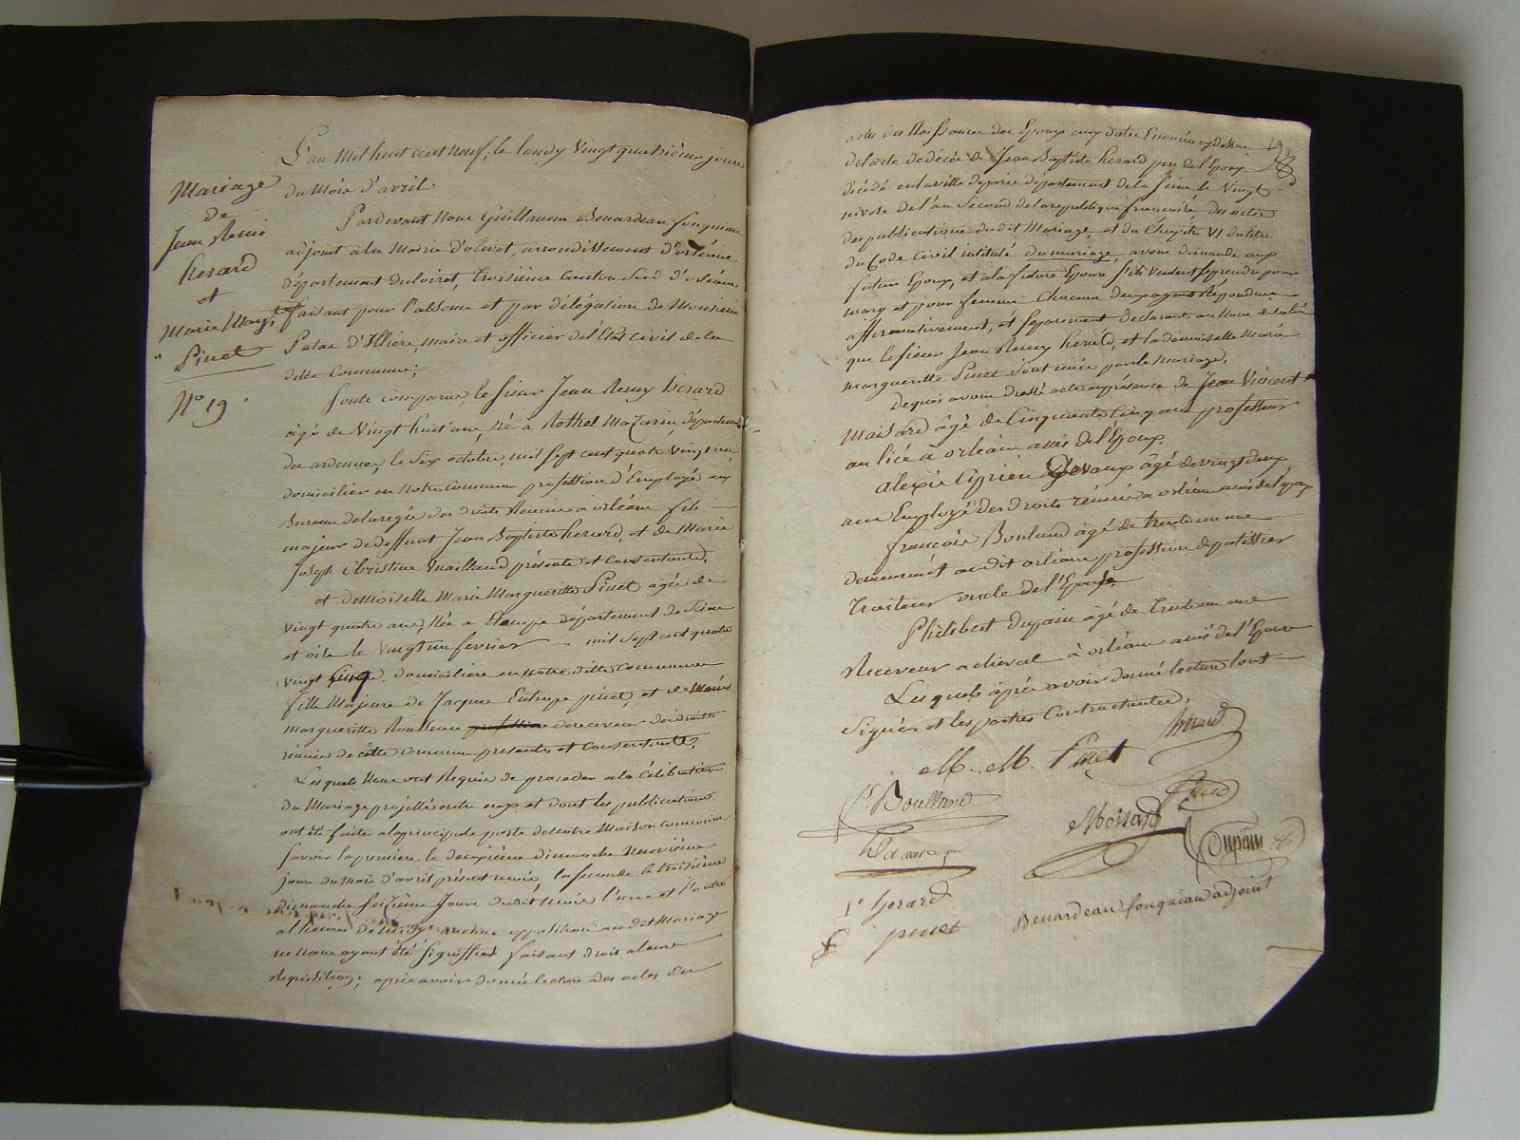 Mariage
de
Jean Remi
herard
et
Marie Margte
Pinet
No 19
L'an Mil huit cent neuf, le lundy Vingt quatrième jour
du Mois d'avril
Pardevant Nous Guillaume Benardeau fougniau
adjoint à la Mairie d'olivet, arrondissement d'orléans
département du loiret, troisième Canton Sud d'orléans
faisant pour l'absence et par délégation de Monsieur
Patas d'Illiers, maire et officier de l'Etat civil de la
ditte Commune;
sont comparus, le sieur Jean Remy herard
âgé de Vingt huit ans, né à Rethel Mazarin, département
des ardennes, le six octobre, mil sept cent quatre vingt
domicilier en notre commune profession d'Employé aux
Bureau de la regie des droits Réunis à orléans fils
majeur de deffunt Jean Baptiste herard, et de Marie
Joseph Christine Maillard présente et consentante.
et demoiselle Marie Margueritte Pinet agée de
vingt quatre ans, Née a Etampe département de Seine
et oise le vingt un fevrier mil sept cent quatre
vingt cinq, domiciliée en notre ditte commune
fille Majeure de Jacque Eutrope pinet, et de Marie
margueritte Boulland profession de receveur des droits
réunis de cette commune presents et consentants.
Lesquels Nous ont Requis de proceder a la Célébration
du Mariage projetté entre eux et dont les publications
ont été faite a la principale porte de notre Maison commune
savoir la premiere le deuxième dimanche Neuvième
jour du Mois d'avril présent mois, la seconde le troisième
Dimanche seizième Jour dudit Mois l'une et l'autre
a l'heure de midy aucune opposition audit Mariage
ne Nous ayant été signiffiée faisant droit a leur
Requisition; après avoir donné lecture des actes de
actes de Naissance des Epoux aux dates Enoncées cy dessus
de l'acte de décés de Jean Baptiste herard pere de l'Epoux
décédé en la ville de paris département de la Seine le Vingt
nivose de l'an Second de la republique française des actes
des publications dudit Mariage, et du Chapitre VI du titre
du Code Civil intitulé du mariage, avons demandé aux
futur Epoux, et a la future Epouse s'ils veulent se prendre pour
mary et pour femme chacun deux ayant Répondu
affirmativement, et séparement declarons au Nom de la loi
que le sieur Jean Remy herard, et la demoiselle Marie
margueritte Pinet sont unis par le Mariage.
Dequoi avons dressé acte en présence de Jean Vincent
Maisard âgé de Cinquante cinq ans professeur
au licé à orléans amis de l'Epoux.
alexis Ciprien Devaux âgé de vingt deux
ans Employé des droits réunis a orléans amis de l'epoux
françois Boulland âgé de trente un ans
demeurant au dit orléans profession de patissier
Traiteur oncle de l'Epouse
Philibert dupain âgé de Trente un ans
Receveur a cheval à orléans amis de l'Epoux
Lesquels après avoir donné lecture l'ont
Signés et les parties Contractantes.
herard
M. M. Pinet
f. Boulland
Pinet
Maisard
Devaux
Dupain
Vve herard
pinet
Benardeau fougniau adjoint